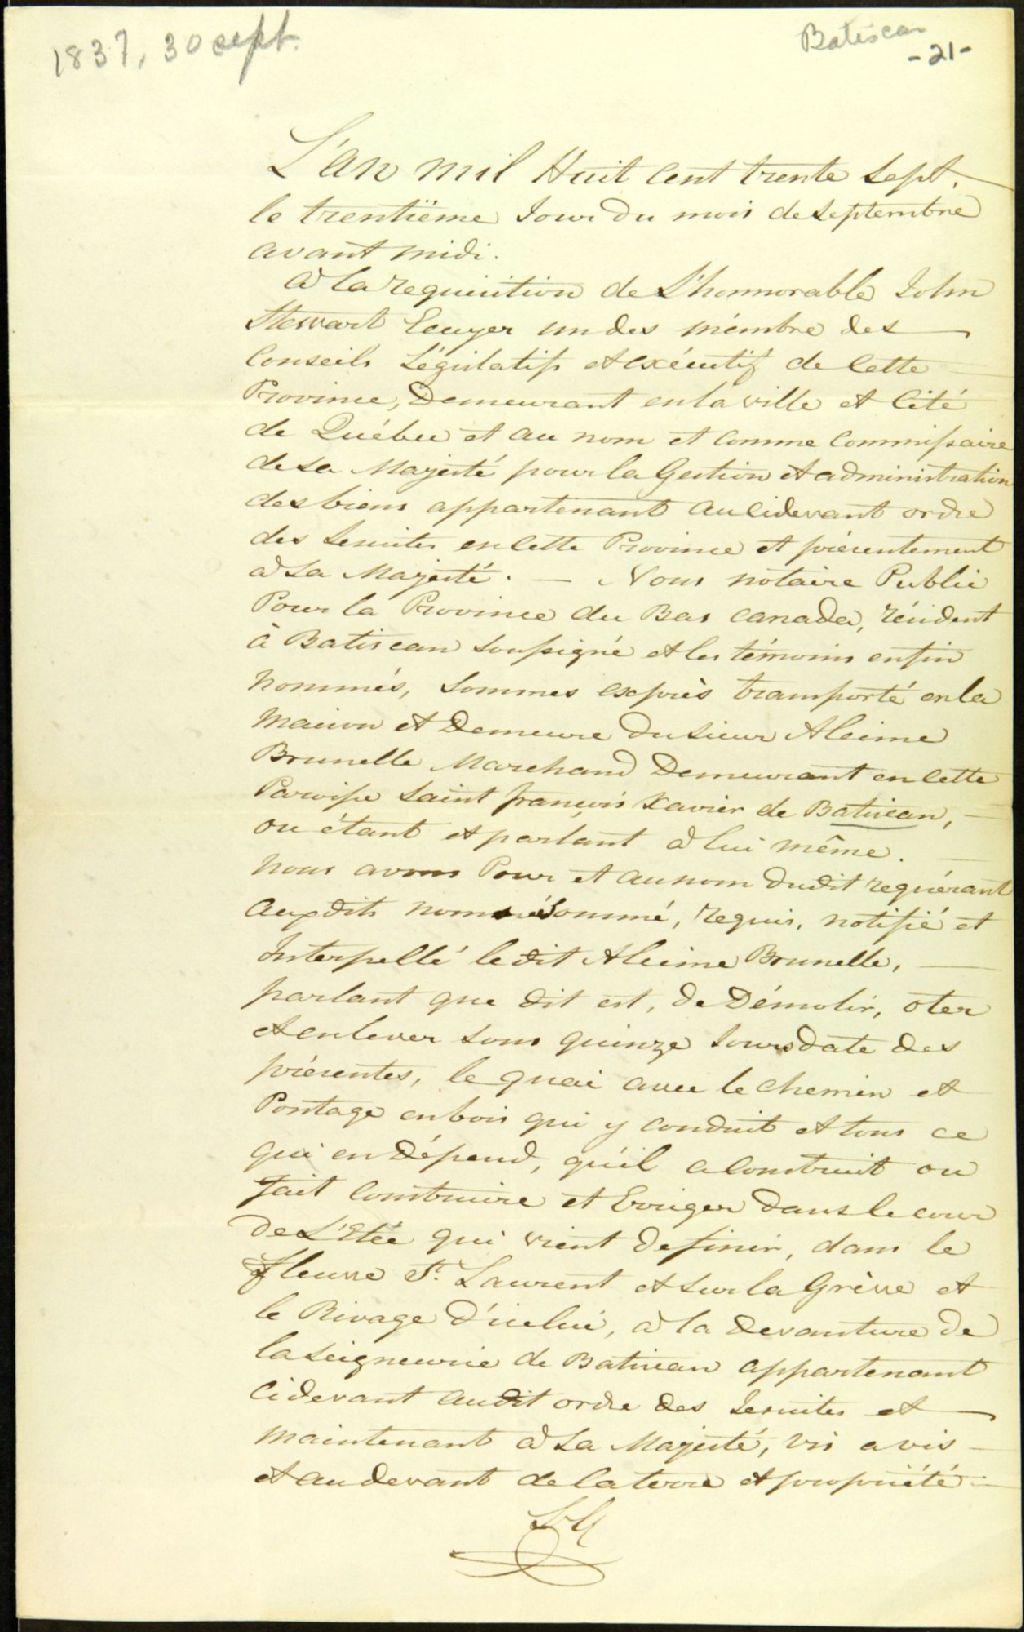 1837, 30 sept.
Batiscan
- 21 -
L'an mil Huit cent trente sept.
le trentiéme Jour du mois de septembre
avant midi.
à la requisition de L'honnorable John
Stewart Ecuyer un des mémbre des
Conseils Législatifs et exécutif de cette
Province, Demeurant en la ville et Cité
de Québec et au nom et comme Commissaire
de sa Majesté pour la Gestion et administration
des biens appartenant au cidevant ordre
des Jesuites en cette Province et présentement
à Sa Majesté. — Nous notaire Public
Pour la Province du Bas Canada, résident
à Batiscan soussigné et les témoins enfin
nommés, Sommes exprès transporté en la
maison et Demeure du Sieur Alcime
Brunelle Marchand Demeurant en cette
Paroisse Saint françois Xavier de Batiscan,
ou étant et parlant à lui même.
nous avons Pour et au nom dudit requérant
aux dits noms sommé, requis, notifié et
Interpellé le dit Alcime Brunelle,
parlant que dit est, de Démolir, oter
et enlever sous quinze Jours date des
présentes, le quai avec le chemin et
Pontage en bois qui y conduit et tous ce
qui en dépend, qu'il a construit ou
fait construire et Erriger dans le cour
de L'Etée qui vient de finir, dans le
fleuve St. Laurent et sur la Grève et
le Rivage d'icelui, à la devanture de
la seigneurie de Batiscan appartenant
cidevant audit ordre des Jesuites et
maintenant à Sa Majesté, vis a vis
et au devant de la terre et propriété